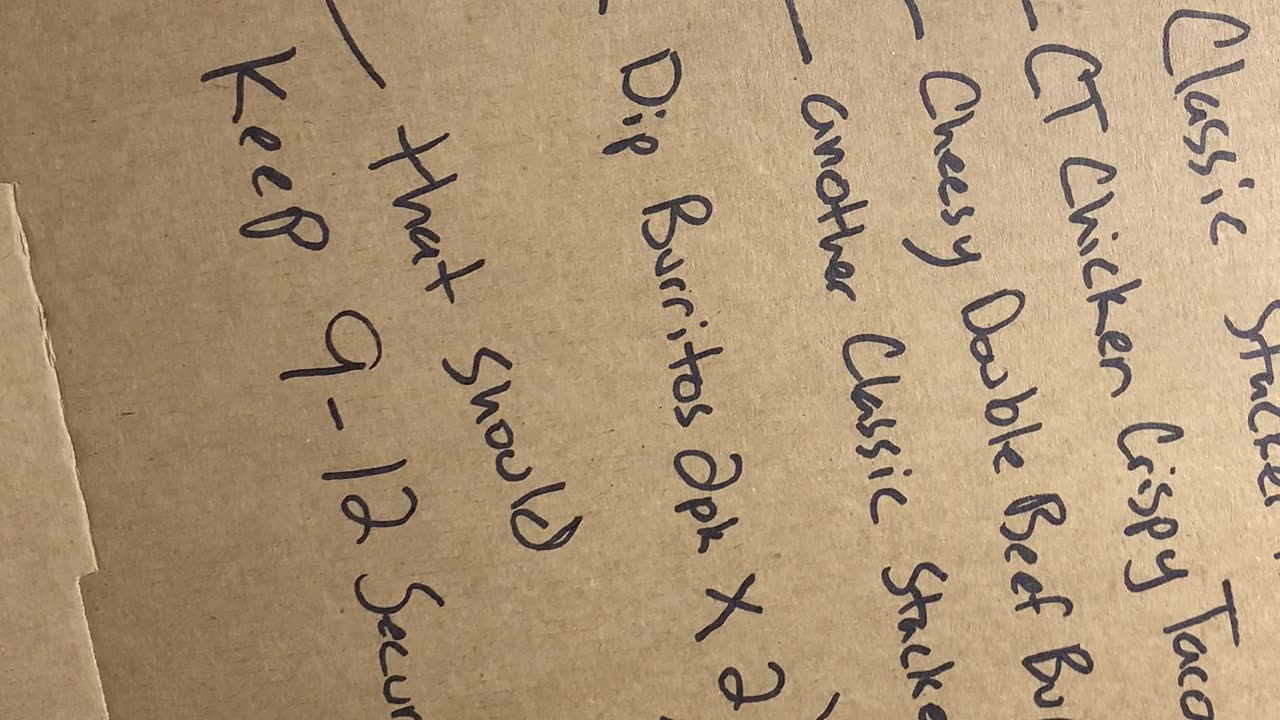 Classic Stacker
- CT Chicken Crispy Taco
- Cheesy Double Beef Bu
- another Classic Stacke
- Dip Burritos 2pk x 2
- that should
Keep 9-12 Secur